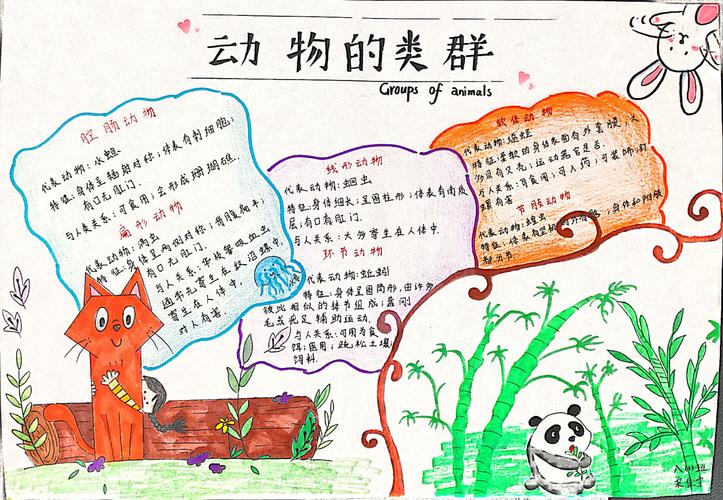 动物的类群
Groups of animals
腔肠动物
代表动物:水螅
特征:身体呈辐射对称;体表有刺细胞;
有口无肛门.
与人类关系:可食用;会形成珊瑚礁.
扁形动物
代表动物:涡虫
特征:身体呈两侧对称;背腹扁平;
有口无肛门.
与人类关系:华枝睾吸血虫
通常先寄生
寄生在人体中.
对人有害.
线形动物
代表动物:蛔虫
特征:身体细长;呈圆柱形;体表有角质
层;有口有肛门.
与人类关系:大多寄生在人体中.
环节动物
代表动物:蚯蚓
特征:身体呈圆筒形,由许多
彼此相似的体节组成;靠刚
毛或疣足辅助运动.
与人类关系:可用为食
饵;医用;疏松土壤;
饲料.
软体动物
代表动物:
特征:柔软的身体表面有外套膜,大
多具有贝壳;运动器官是足.
与人类关系:可食用;可入药;可装饰;钉
螺有害.
节肢动物
代表动物:蝗虫
特征:体表有坚韧的外骨骼;身体和附肢
都分节.